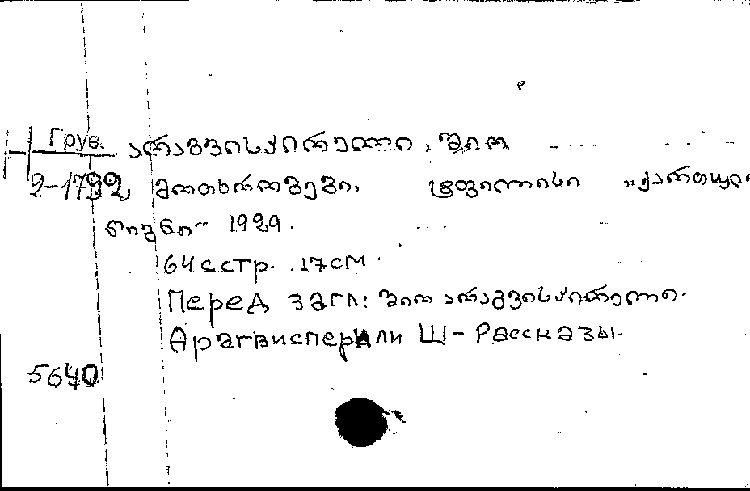 Груз. არაგვისპირელი, შიო
2-1792 მოთხრობები. ტფილისი „ქართული
წიგნი“ 1929.
64 с.стр. 17 см.
Перед загл: შიო არაგვისპირელი.
Арагвисперили Ш - Рассказы
5640